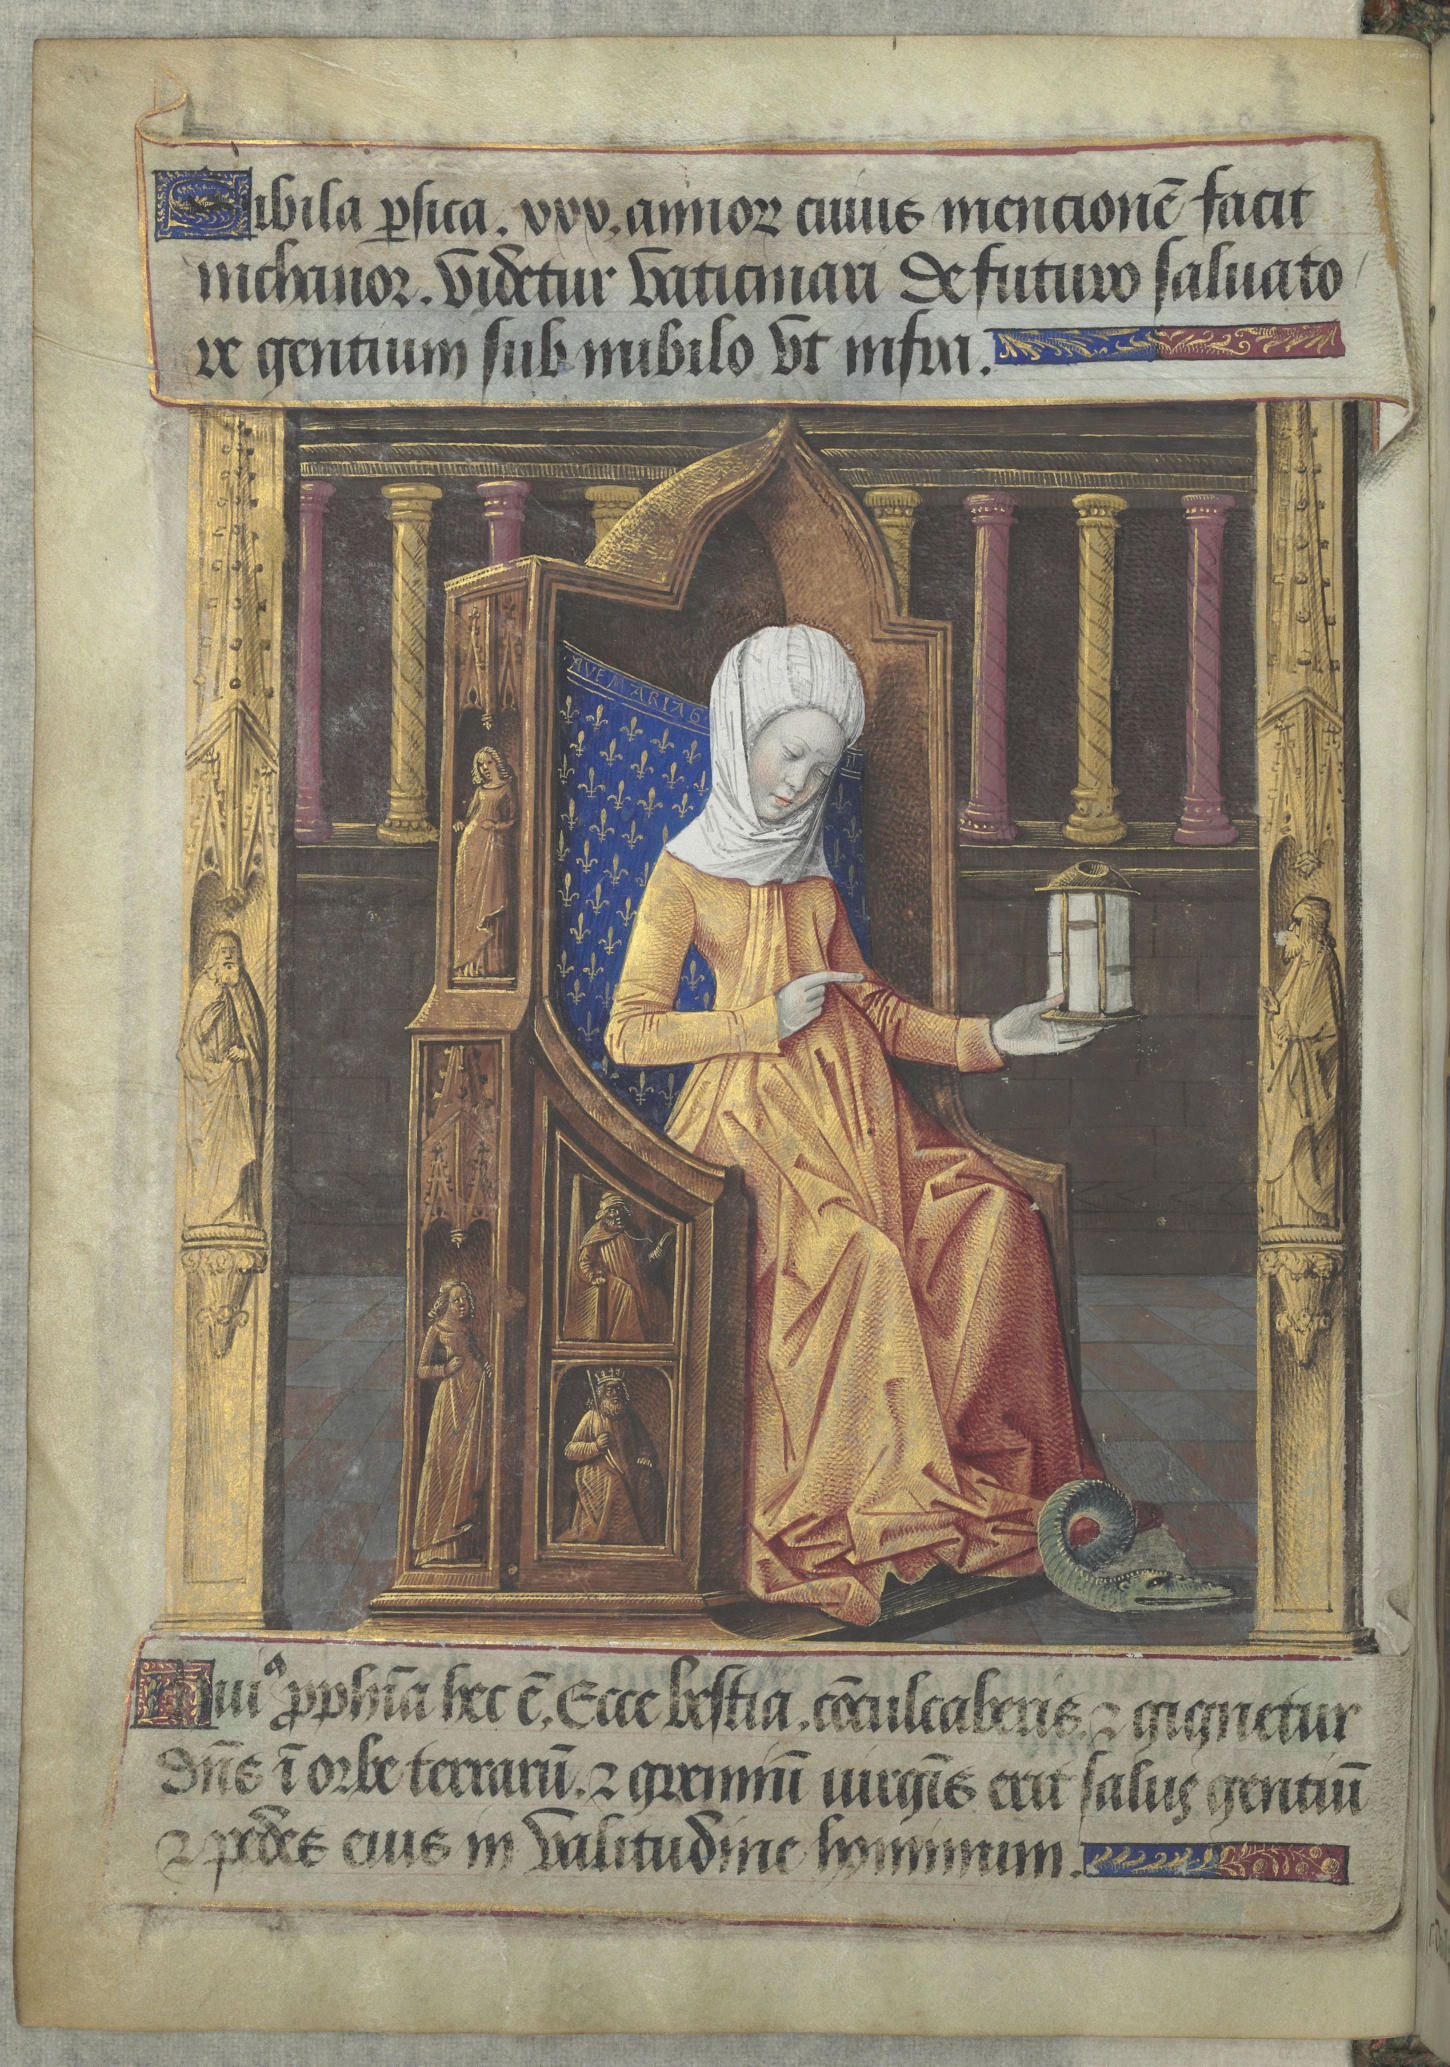 Sibila p̱sica. xxx. annoꝝ cuius mencionē facit
nichanor. Videtur vaticinari de futuro saluato
re gentium sub nubilo vt infra.
AVE MARIA G
Cuiꝰ ꝓphīa hec ē. Ecce bestia. cōculcaberis. ⁊ gignetur
dñs ī orbe terrarū. ⁊ gremiū uirgīs erit salus gentiū
⁊ pedes eius in valitudine hominum.